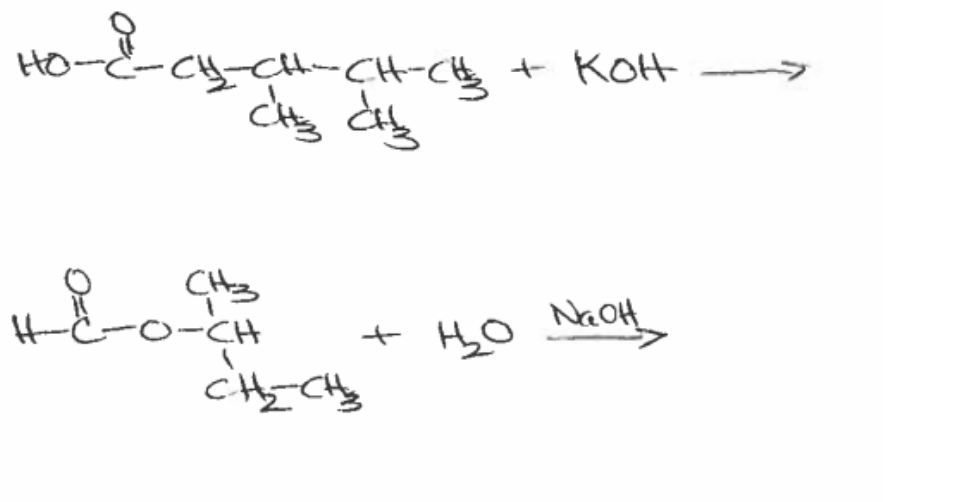 O
HO-C-CH2-CH-CH-CH3 + KOH →
CH3 CH3
O CH3
H-C-O-CH + H2O NaOH →
CH2-CH3